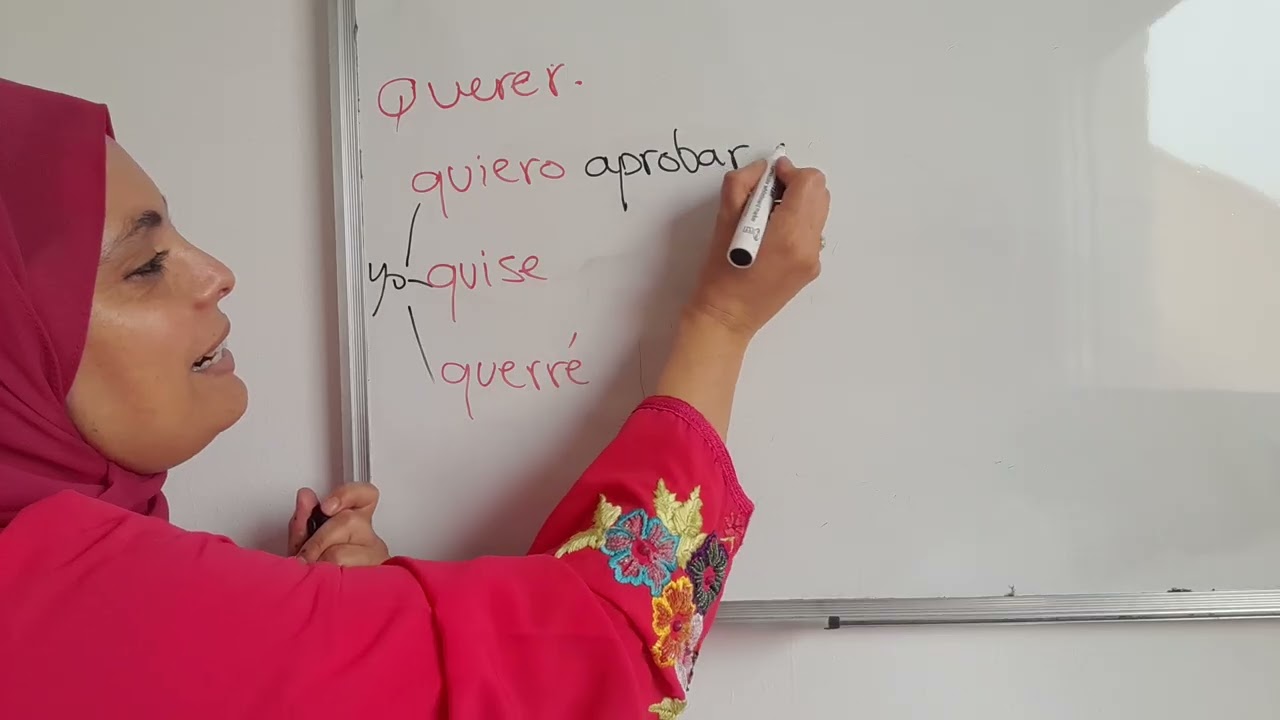 Querer.
quiero aprobar
yo quise
querré